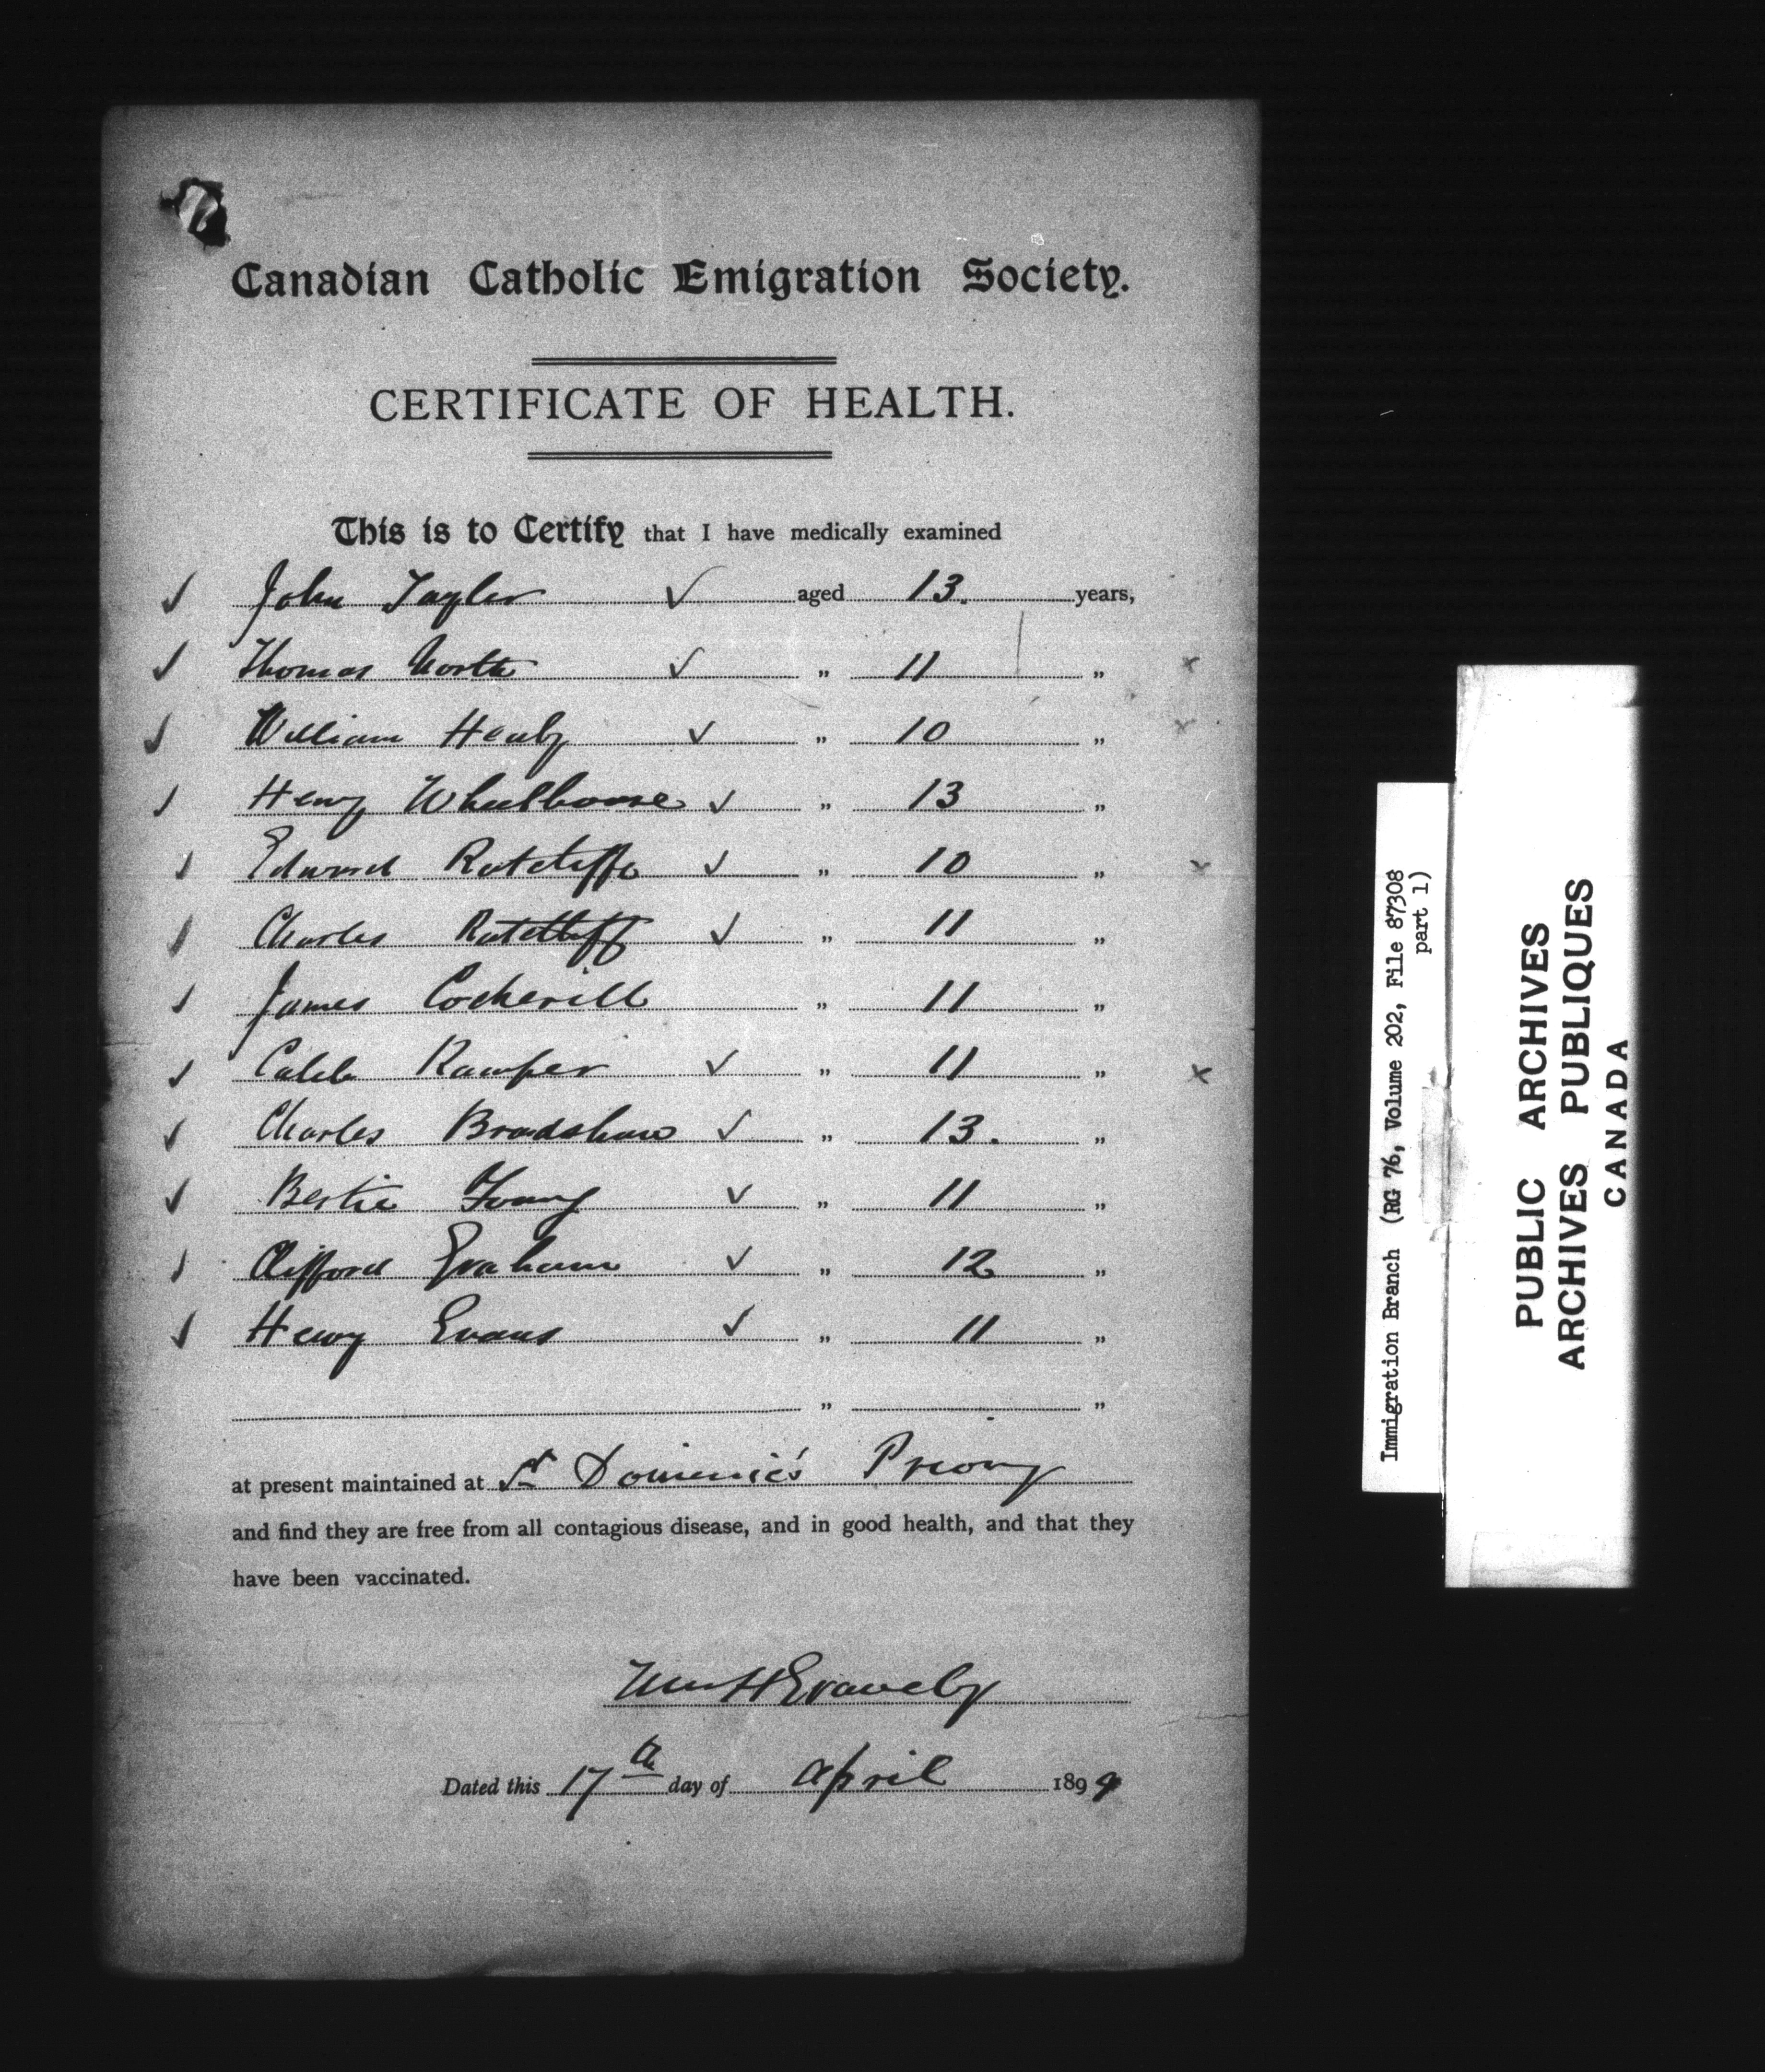 Canadian Catholic Emigration Society.
CERTIFICATE OF HEALTH.
This is to Certify that I have medically examined
✓ John Taylor ✓ aged 13. years,
✓ Thomas North ✓ " 11 " x
✓ William Healy ✓ " 10 " x
✓ Henry Wheelhouse ✓ " 13 "
✓ Edward Ratcliffe ✓ " 10 " x
✓ Charles Ratcliff ✓ " 11 "
✓ James Cockerill " 11 "
✓ Caleb ✓ " 11 " x
✓ Charles Bradshaw ✓ " 13. "
✓ Bertie Young ✓ " 11 "
✓ Clifford Graham ✓ " 12 "
✓ Henry Evans ✓ " 11 "
" "
at present maintained at St Dominic's Priory
and find they are free from all contagious disease, and in good health, and that they
have been vaccinated.
Wm H
Dated this 17th day of April 1899
Immigration Branch (RG 76, Volume 202, File 87308
part 1)
PUBLIC ARCHIVES
ARCHIVES PUBLIQUES
CANADA